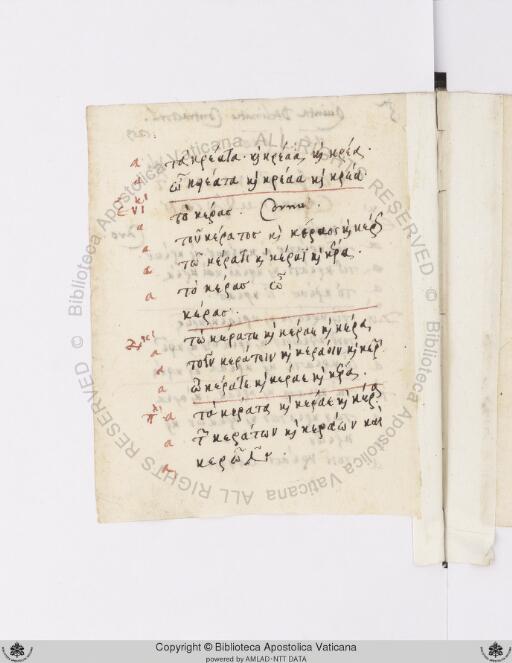 α τὰ κρέατα. κὶ κρέαα, κὶ κρέα.
α ὦ κρέατα κὶ κρέαα κὶ κρέα
ενι τὸ κέρας. Cornu.
α τοῦ κέρατος κὶ κέραος κὶ κέρως
α τῶ κέρατι κὶ κέραϊ κὶ κέρα.
α τὸ κέρας ὦ
κέρας.
τὼ κέρατε κὶ κέραε κὶ κέρα,
α τοῖν κεράτοιν κὶ κεράοιν κὶ κερῷν
α ὦ κέρατε κὶ κέραε κὶ κέρα.
α τὰ κέρατα κὶ κέραα κὶ κέρα
α τῶν κεράτων κὶ κεράων καὶ
α κερῶν
Copyright © Biblioteca Apostolica Vaticana
powered by AMLAD-NTT DATA